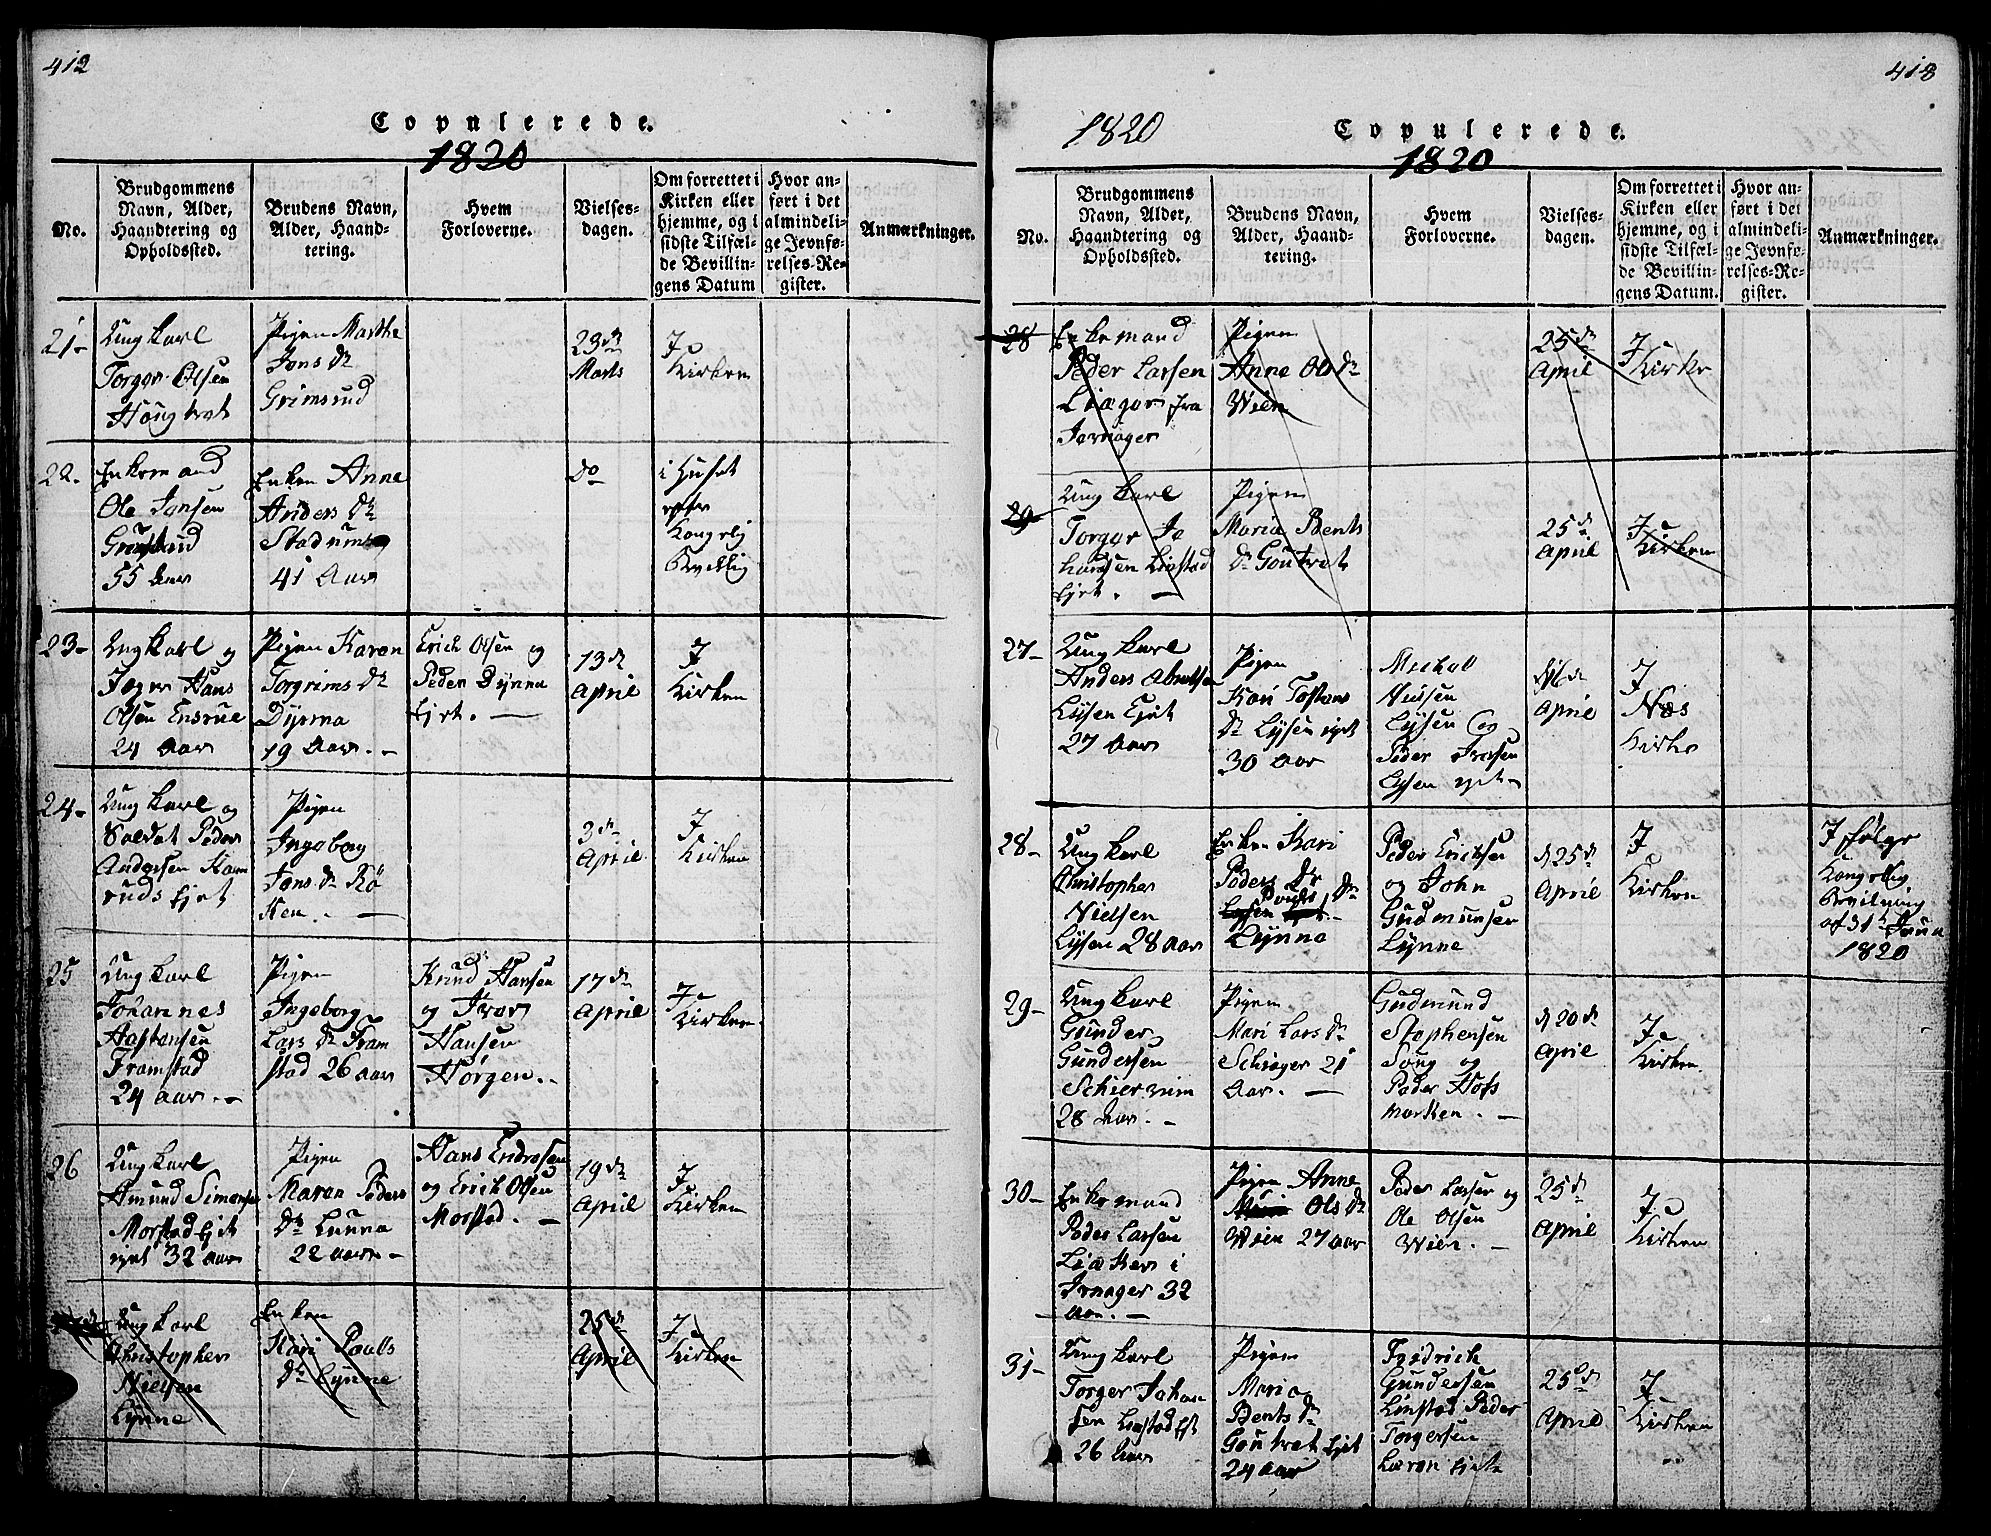 412
Copulerede.
1820
No.
Brudgommens
Navn, Alder,
Haandtering og
Opholdssted.
Brudens Navn,
Alder, Haand-
tering.
Hvem
Forloverne.
Vielses-
dagen.
Om forrettet i
Kirken eller
hjemme, og i
sidste Tilfæl-
de Bevillin-
gens Datum
Hvor an-
ført i det
almindeli-
ge Jevnfø-
relses-Re-
gister.
Anmærkninger.
21-
Ungkarl
Torger Olsen
Pigen Marthe
Jons Dr
Grimsrud
23de
Marts
I
Kirken
22.
Enkemand
Ole Jonsen
55 Aar
Enken Anne
Anders Dr
41 Aar
do
i Huset
efter
Kongelig
23-
Ungkarl og
Hans
Olsen
24 Aar
Pigen Karen
Torgrims Dr
Dynna
19 Aar. -
Erich Olsen og
Peder Dynna
Ejet. -
13de
April
I
Kirken
24-
Ungkarl og
Soldat Peder
Andersen
ruds Ejet
Pigen
Ingeborg
Jons Dr Kø
ken. -
3de
April
I
Kirken
25
Ungkarl
Johannes
Framstad
24 aar. -
Pigen
Ingeborg
Lars Dr Fram
stad 26 aar
Knud Hansen
og Iver
Hansen
Hørgen. -
17de
April
I
Kirken
26
Ungkarl
Amund Simensen
Morstad Ejet
32 aar
Pigen
Maren Peders
Dr Lunna
22 aar -
Hans
og Erich Olsen
Morstad. -
19de
April
I
Kirken
Ungkarl
Christopher
Nielsen
Lynne
Enken
Kari Pouls
Dr Lynne
25de
April
I
Kirken
413
1820
Copulerede.
1820
No.
Brudgommens
Navn, Alder,
Haandtering og
Opholdssted.
Brudens Navn,
Alder, Haand-
tering.
Hvem
Forloverne.
Vielses-
dagen.
Om forrettet i
Kirken eller
hjemme, og i
sidste Tilfæl-
de Bevillin-
gens Datum.
Hvor an-
ført i det
almindeli-
ge Jevnfø-
relses-Re-
gister.
Anmærkninger.
28
Enkemand
Peder Larsen
fra
Jevnager
Pigen
Anne Ols Dr
Wien
25de
April
I
Kirke
29
Ungkarl
Torger Jo
hansen Liostad
Ejet. -
Pigen
Maria Bents
Dr Gontvet
25de
April
I
Kirken
27-
Ungkarl
Anders
Lysen Ejet
27 Aar
Pigen
Kari
Dr Lysen
30 Aar
Lysen og
Peder
Lysen
16de
April
I
Næs
Kirke
28-
Ungkarl
Christopher
Nielsen
Lysen 28 Aar
Enken Kari
Peders Dr
Pouls Dr
Lynne
Peder Erichsen
og John
Gudmunsen
Lynne
d 25de
April
I
Kirken
I følge
Kongelig
Bevilning
af 31te
1820
29-
Ungkarl
Gunder
Gundersen
28 Aar. -
Pigen
Mari Lars Dr
Schiager 21
Aar. -
Gudmund
Stephensen
og
Peder Hofs
marken. -
d 20de
April
I
Kirken.
30-
Enkemand
Peder Larsen
Liaker i
32
Aar. -
Pigen Anne
Ols Dr
Wien 27 aar
Peder Larsen og
Ole Olsen
Wien. -
25de
April
I
Kirken
31-
Ungkarl
Torger Johan
sen Liostad
26 Aar
Pigen
Maria
Bents Dr
Gontvet Ejet
24 Aar
Fridrich
Gundersen
Peder
Torgersen
25de
April
I
Kirken